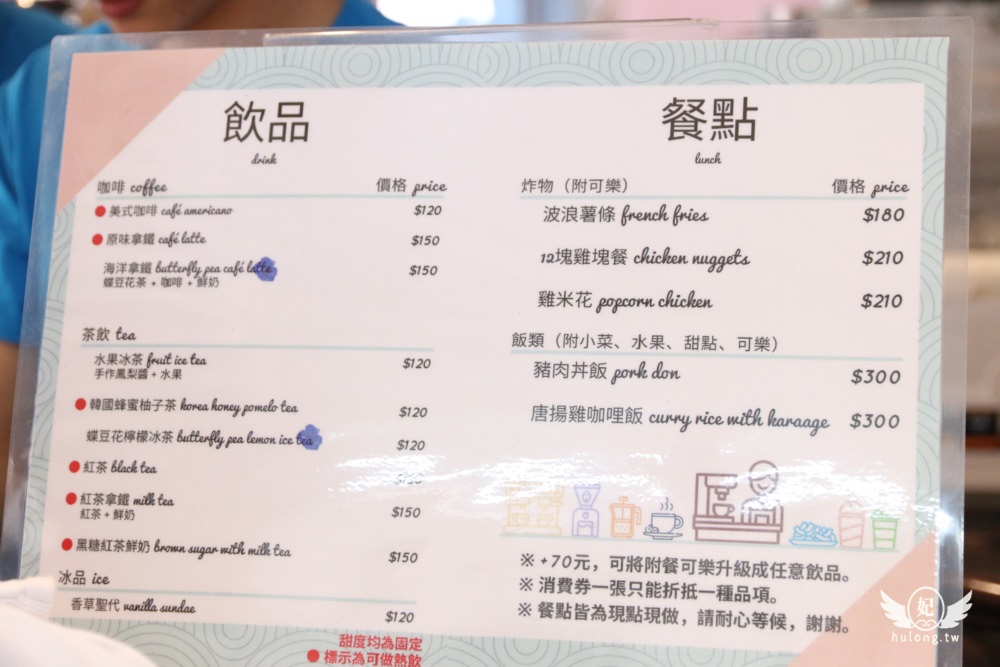 飲品
drink
咖啡 coffee 價格 price
美式咖啡 café americano $120
原味拿鐵 café latte $150
海洋拿鐵 butterfly pea café latte $150
蝶豆花茶 + 咖啡 + 鮮奶
茶飲 tea
水果冰茶 fruit ice tea $120
手作鳳梨醬 + 水果
韓國蜂蜜柚子茶 korea honey pomelo tea $120
蝶豆花檸檬冰茶 butterfly pea lemon ice tea $120
紅茶 black tea
紅茶拿鐵 milk tea $150
紅茶 + 鮮奶
黑糖紅茶鮮奶 brown sugar with milk tea $150
冰品 ice
香草聖代 vanilla sundae $120
甜度均為固定
標示為可做熱飲
餐點
lunch
炸物（附可樂） 價格 price
波浪薯條 french fries $180
12塊雞塊餐 chicken nuggets $210
雞米花 popcorn chicken $210
飯類（附小菜、水果、甜點、可樂）
豬肉丼飯 pork don $300
唐揚雞咖哩飯 curry rice with karaage $300
※ +70元，可將附餐可樂升級成任意飲品。
※ 消費券一張只能折抵一種品項。
※ 餐點皆為現點現做，請耐心等候，謝謝。
妃
hulong.tw